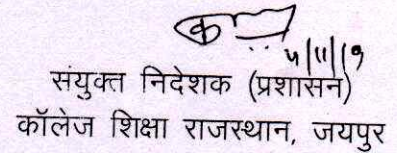 5/11/19
संयुक्त निदेशक (प्रशासन)
कॉलेज शिक्षा राजस्थान, जयपुर